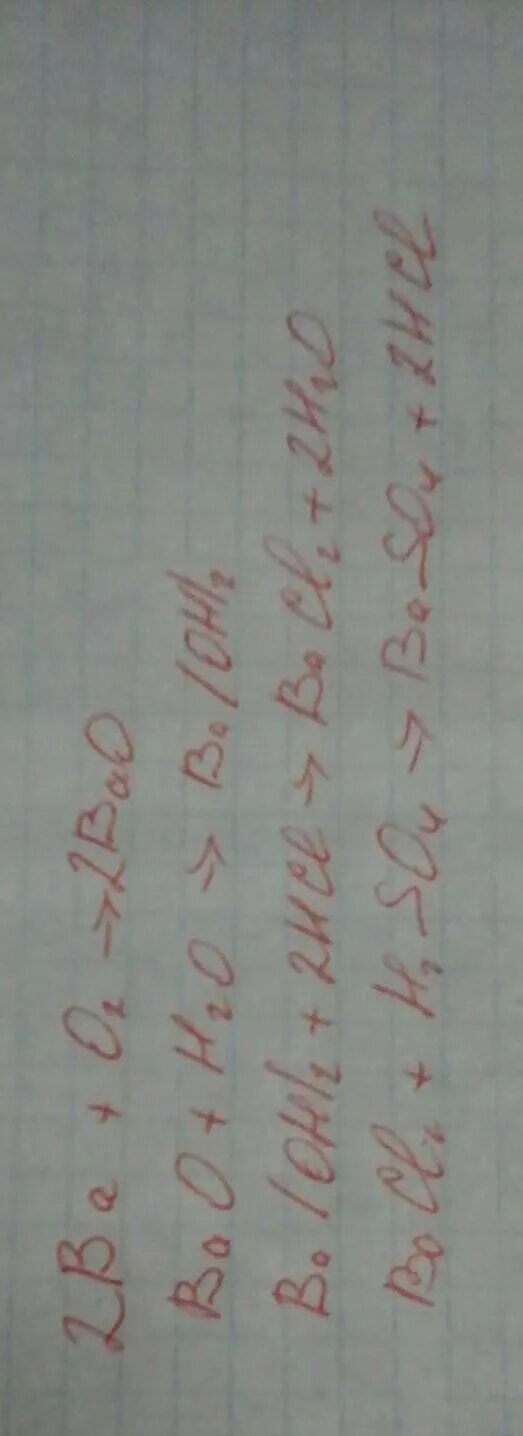 2Ba + O₂ → 2BaO
BaO + H₂O → Ba(OH)₂
Ba(OH)₂ + 2HCl → BaCl₂ + 2H₂O
BaCl₂ + H₂SO₄ → BaSO₄ + 2HCl